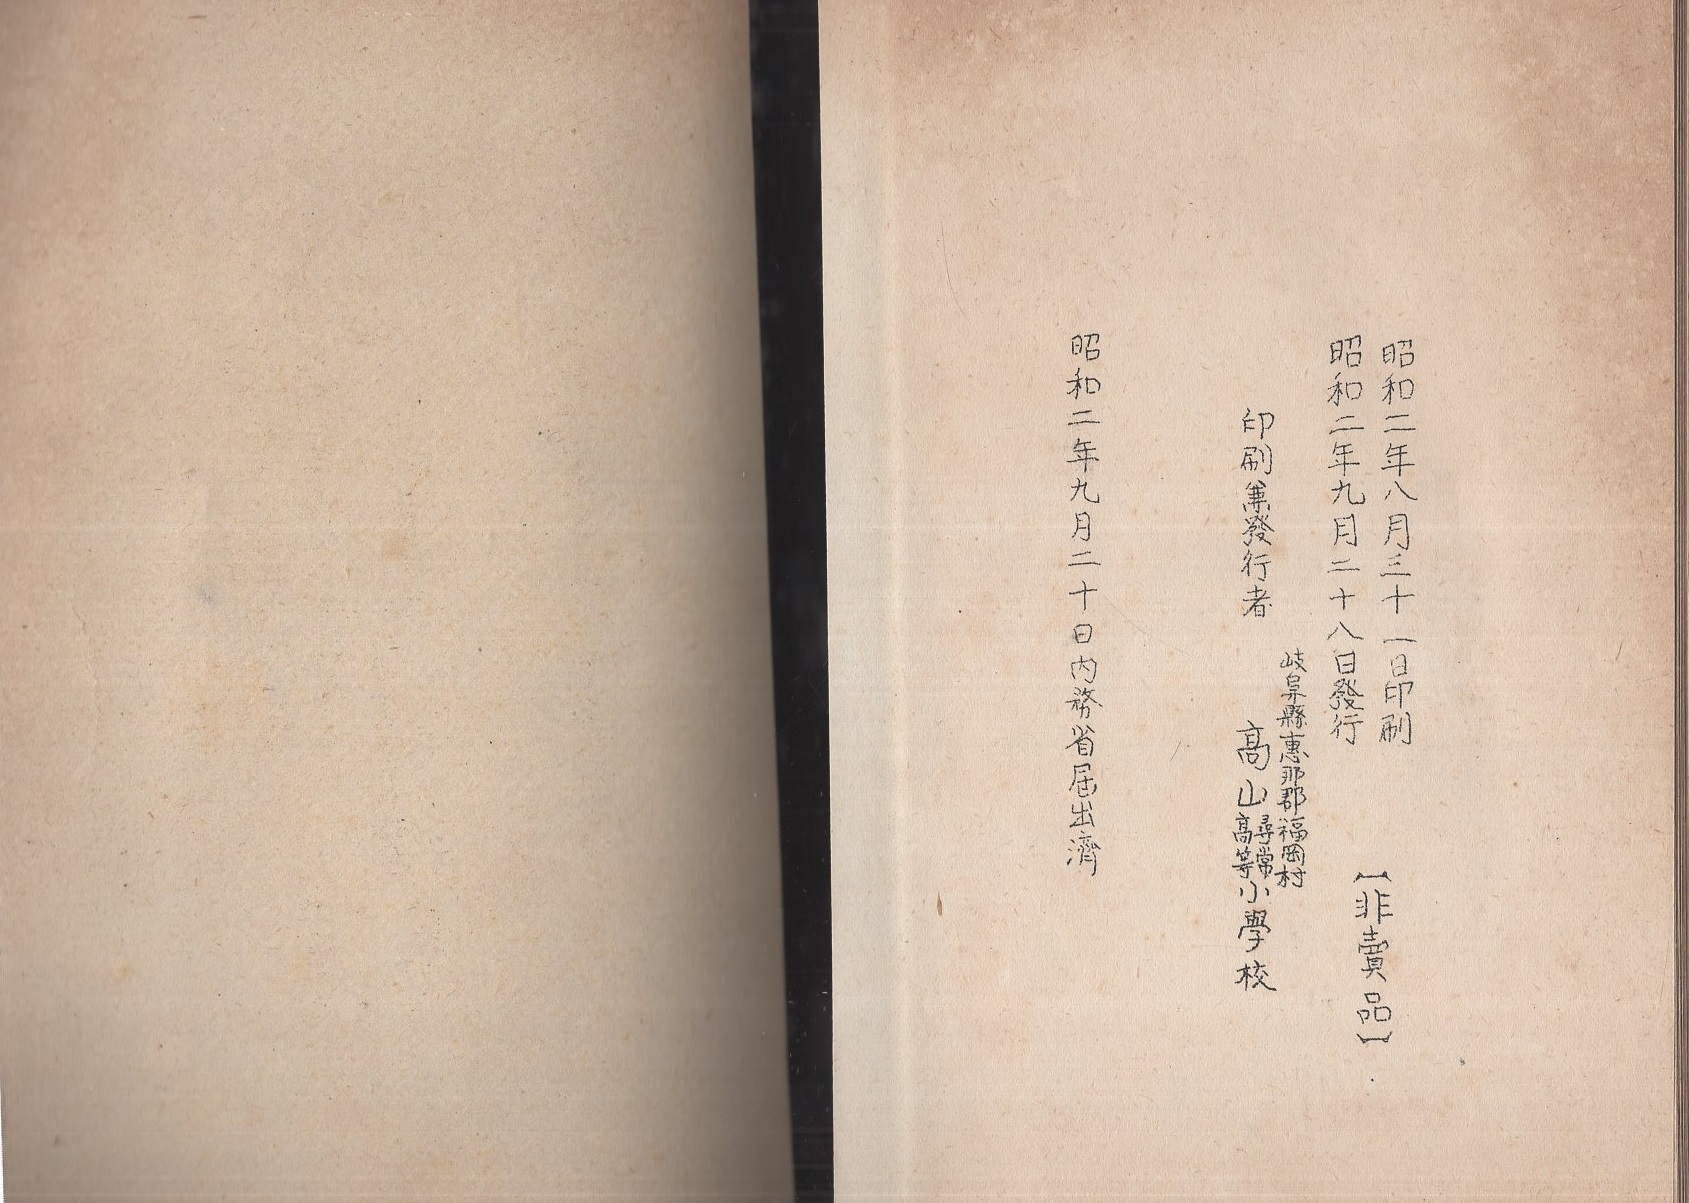 昭和二年八月三十一日印刷
昭和二年九月二十八日發行
【非賣品】
岐阜縣惠那郡福岡村
印刷兼發行者 高山尋常高等小學校
昭和二年九月二十日内務省届出濟